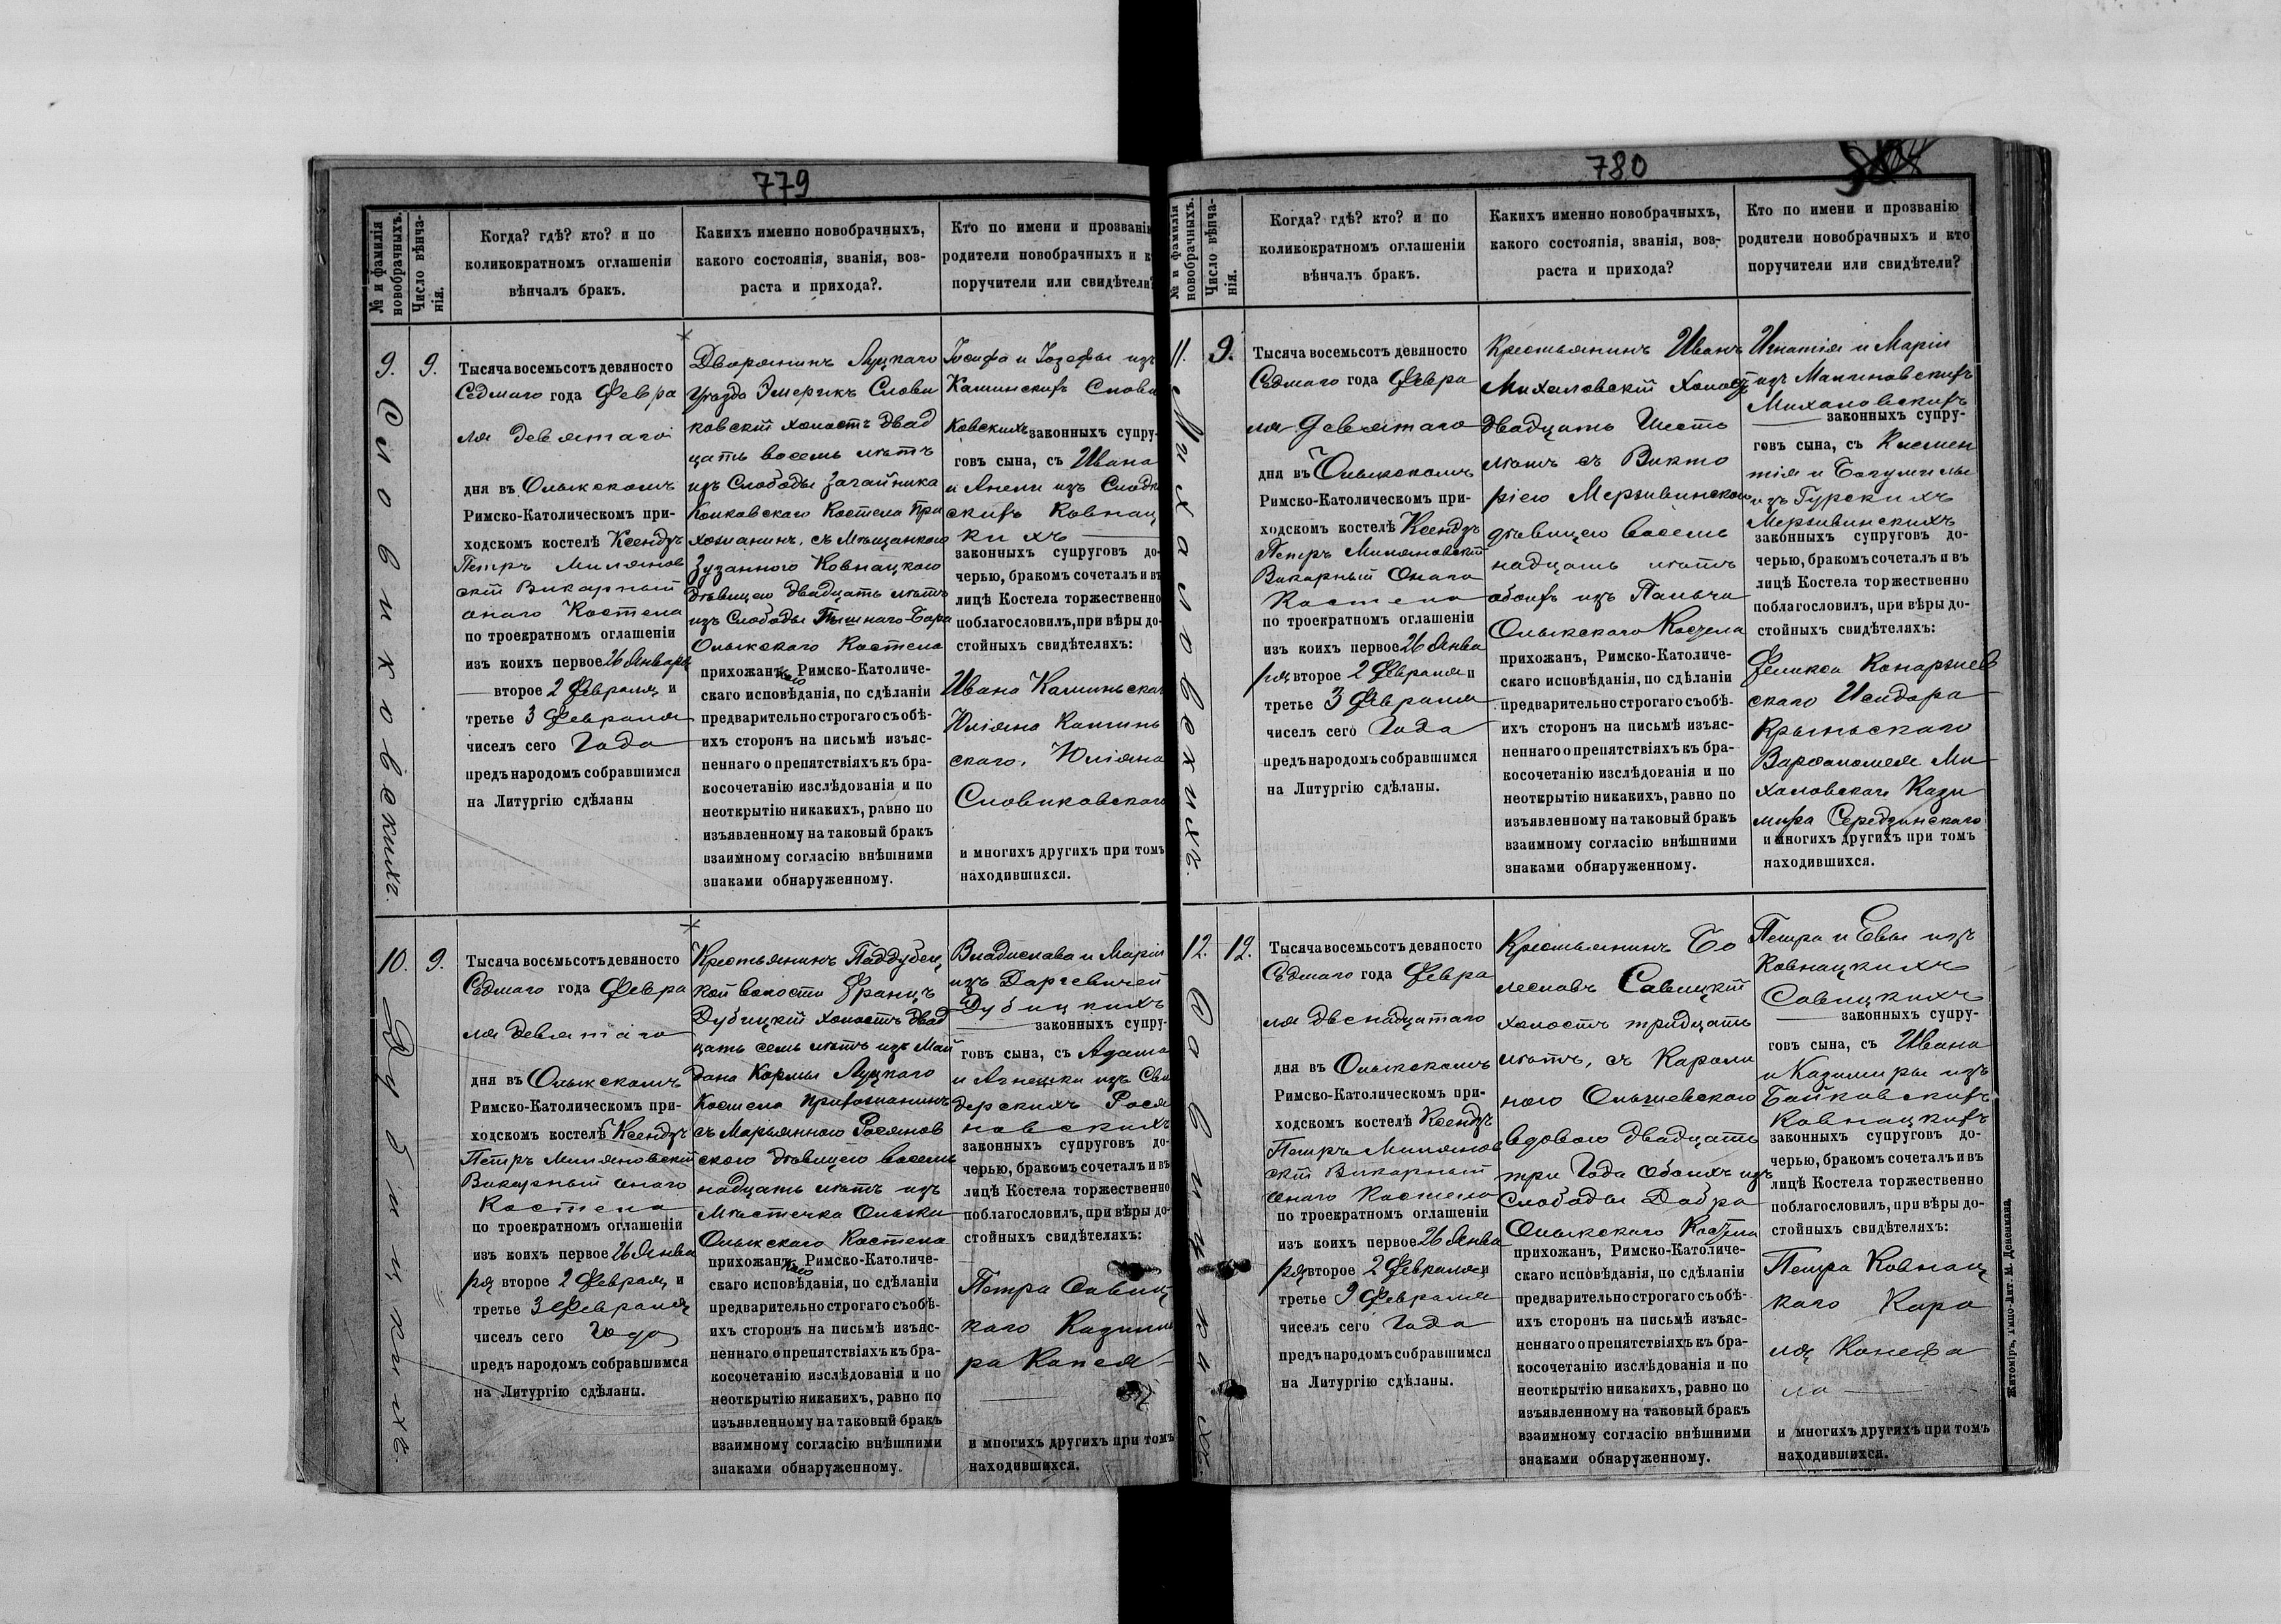 779
№ и фамилія новобрачныхъ.
Число вѣнчанія.
Когда? гдѣ? кто? и по
коликократномъ оглашеніи
вѣнчалъ бракъ.
Какихъ именно новобрачныхъ,
какого состоянія, званія, воз-
раста и прихода?.
Кто по имени и прозванію
родители новобрачныхъ и к
поручители или свидѣтели?
9.
Словиковскихъ.
9.
Тысяча восемьсотъ девяносто
Седмаго года Февра
ля девятаго
дня въ Олыкскомъ
Римско-Католическомъ при-
ходскомъ костелѣ Ксендзъ
Петръ Милянов
скій Викарный
онаго Костела
по троекратномъ оглашеніи
изъ коихъ первое 26 Января
второе 2 Февраля и
третье 3 Февраля
чиселъ сего Года
предъ народомъ собравшимся
на Литургію сдѣланы
Дворянинъ Луцкаго
уѣзда Эмерикъ Слови
ковскій холостъ двад
цать восемь лѣтъ
изъ Слободы Загайника
Колковскаго Костела При
хожанинъ, съ Мѣщанкою
Зузанною Ковнацкою
дѣвицею двадцать лѣтъ
изъ Слободы Пышнаго-Бора
Олыкскаго Костела
прихожан кою Римско-Католиче-
скаго исповѣданія, по сдѣланіи
предварительно строгаго съ обѣ-
ихъ сторонъ на письмѣ изъяс-
неннаго о препятствіяхъ къ бра-
косочетанію изслѣдованія и по
неоткрытію никакихъ, равно по
изъявленному на таковый бракъ
взаимному согласію внѣшними
знаками обнаруженному.
Іосифа и Іозефы изъ
Каминскихъ Слови
ковскихъ законныхъ супру-
говъ сына, съ Ивана
и Анели изъ
скихъ Ковнац
кихъ
законныхъ супруговъ до-
черью, бракомъ сочеталъ и въ
лицѣ Костела торжественно
поблагословилъ, при вѣры до-
стойныхъ свидѣтеляхъ:
Ивана Каминьскаго
Юліяна Каминь
скаго, Юліяна
Словиковскаго
и многихъ другихъ при томъ
находившихся.
10.
Дубицкихъ.
9.
Тысяча восемьсотъ девяносто
Седмаго года Февра
ля девятаго
дня въ Олыкскомъ
Римско-Католическомъ при-
ходскомъ костелѣ Ксендзъ
Петръ Миляновскій
Викарный онаго
Костела
по троекратномъ оглашеніи
изъ коихъ первое 26 Янва
ря второе 2 Февраля и
третье 3 Февраля
чиселъ сего Года
предъ народомъ собравшимся
на Литургію сдѣланы.
Крестьянинъ Поддубец
кой волости Францъ
Дубицкій холостъ двад
цать семь лѣтъ изъ Май
дана Кормы Луцкаго
Костела Прихожанинъ
съ Марьянною Росянов
скою дѣвицею восем
надцать лѣтъ изъ
Мѣстечка Олыки
Олыкскаго Костела
прихожан кою Римско-Католиче-
скаго исповѣданія, по сдѣланіи
предварительно строгаго съ обѣ-
ихъ сторонъ на письмѣ изъяс-
неннаго о препятствіяхъ къ бра-
косочетанію изслѣдованія и по
неоткрытію никакихъ, равно по
изъявленному на таковый бракъ
взаимному согласію внѣшними
знаками обнаруженному.
Владислава и Маріи
изъ Даргевичей
Дубицкихъ
законныхъ супру-
говъ сына, съ Адама
и Агнешки изъ Сви
дерскихъ Рося
новскихъ
законныхъ супруговъ до-
черью, бракомъ сочеталъ и въ
лицѣ Костела торжественно
поблагословилъ, при вѣры до-
стойныхъ свидѣтеляхъ:
Петра Савиц
каго Казими
ра Капся
и многихъ другихъ при томъ
находившихся.
780
№ и фамилія новобрачныхъ.
Число вѣнчанія.
Когда? гдѣ? кто? и по
коликократномъ оглашеніи
вѣнчалъ бракъ.
Какихъ именно новобрачныхъ,
какого состоянія, званія, воз-
раста и прихода?
Кто по имени и прозванію
родители новобрачныхъ и кто
поручители или свидѣтели?
11.
Михаловскихъ.
9.
Тысяча восемьсотъ девяносто
Седмаго года Февра
ля девятаго
дня въ Олыкскомъ
Римско-Католическомъ при-
ходскомъ костелѣ Ксендзъ
Петръ Миляновскій
Викарный Онаго
Костела
по троекратномъ оглашеніи
изъ коихъ первое 26 Янва
ря второе 2 Февраля и
третье 3 Февраля
чиселъ сего Года
предъ народомъ собравшимся
на Литургію сдѣланы.
Крестьянинъ Иванъ
Михаловскій холостъ
двадцать Шесть
лѣтъ съ Викто
ріею Мерзвинскою
дѣвицею восем
надцать лѣтъ
обоихъ изъ Пальча
Олыкскаго Костела
прихожанъ, Римско-Католиче-
скаго исповѣданія, по сдѣланіи
предварительно строгаго съ обѣ-
ихъ сторонъ на письмѣ изъяс-
неннаго о препятствіяхъ къ бра-
косочетанію изслѣдованія и по
неоткрытію никакихъ, равно по
изъявленному на таковый бракъ
взаимному согласію внѣшними
знаками обнаруженному.
Игнатія и Маріи
изъ Малиновскихъ
Михаловскихъ
законныхъ супру-
говъ сына, съ Клемен
тія и Богумилы
изъ Гурскихъ
Мерзвинскихъ
законныхъ супруговъ до-
черью, бракомъ сочеталъ и въ
лицѣ Костела торжественно
поблагословилъ, при вѣры до-
стойныхъ свидѣтеляхъ:
Феликса Конаржев
скаго Исидора
Крыньскаго
Варфоломея Ми
халовскаго Кази
мира Середзинскаго
и многихъ другихъ при томъ
находившихся.
12.
Савицкихъ.
12.
Тысяча восемьсотъ девяносто
Седмаго года Февра
ля двенадцатаго
дня въ Олыкскомъ
Римско-Католическомъ при-
ходскомъ костелѣ Ксендзъ
Петръ Милянов
скій Викарный
онаго Костела
по троекратномъ оглашеніи
изъ коихъ первое 26 Янва
ря второе 2 Февраля и
третье 9 Февраля
чиселъ сего Года
предъ народомъ собравшимся
на Литургію сдѣланы.
Крестьянинъ Бо
леславъ Савицкій
холостъ тридцать
лѣтъ, съ Кароли
ною Ольшевскою
вдовою двадцать
три Года обоихъ изъ
Слободы Добра
Олыкскаго Костела
прихожанъ, Римско-Католиче-
скаго исповѣданія, по сдѣланіи
предварительно строгаго съ обѣ-
ихъ сторонъ на письмѣ изъяс-
неннаго о препятствіяхъ къ бра-
косочетанію изслѣдованія и по
неоткрытію никакихъ, равно по
изъявленному на таковый бракъ
взаимному согласію внѣшними
знаками обнаруженному.
Петра и Евы изъ
Ковнацкихъ
Савицкихъ
законныхъ супру-
говъ сына, съ Ивана
и Казимиры изъ
Байковскихъ
Ковнацкихъ
законныхъ супруговъ до-
черью, бракомъ сочеталъ и въ
лицѣ Костела торжественно
поблагословилъ, при вѣры до-
стойныхъ свидѣтеляхъ:
Петра Ковнац
каго Каро
ля Конефа
ла
и многихъ другихъ при томъ
находившихся.
Житоміръ, Типо-Лит. М. Дененмана